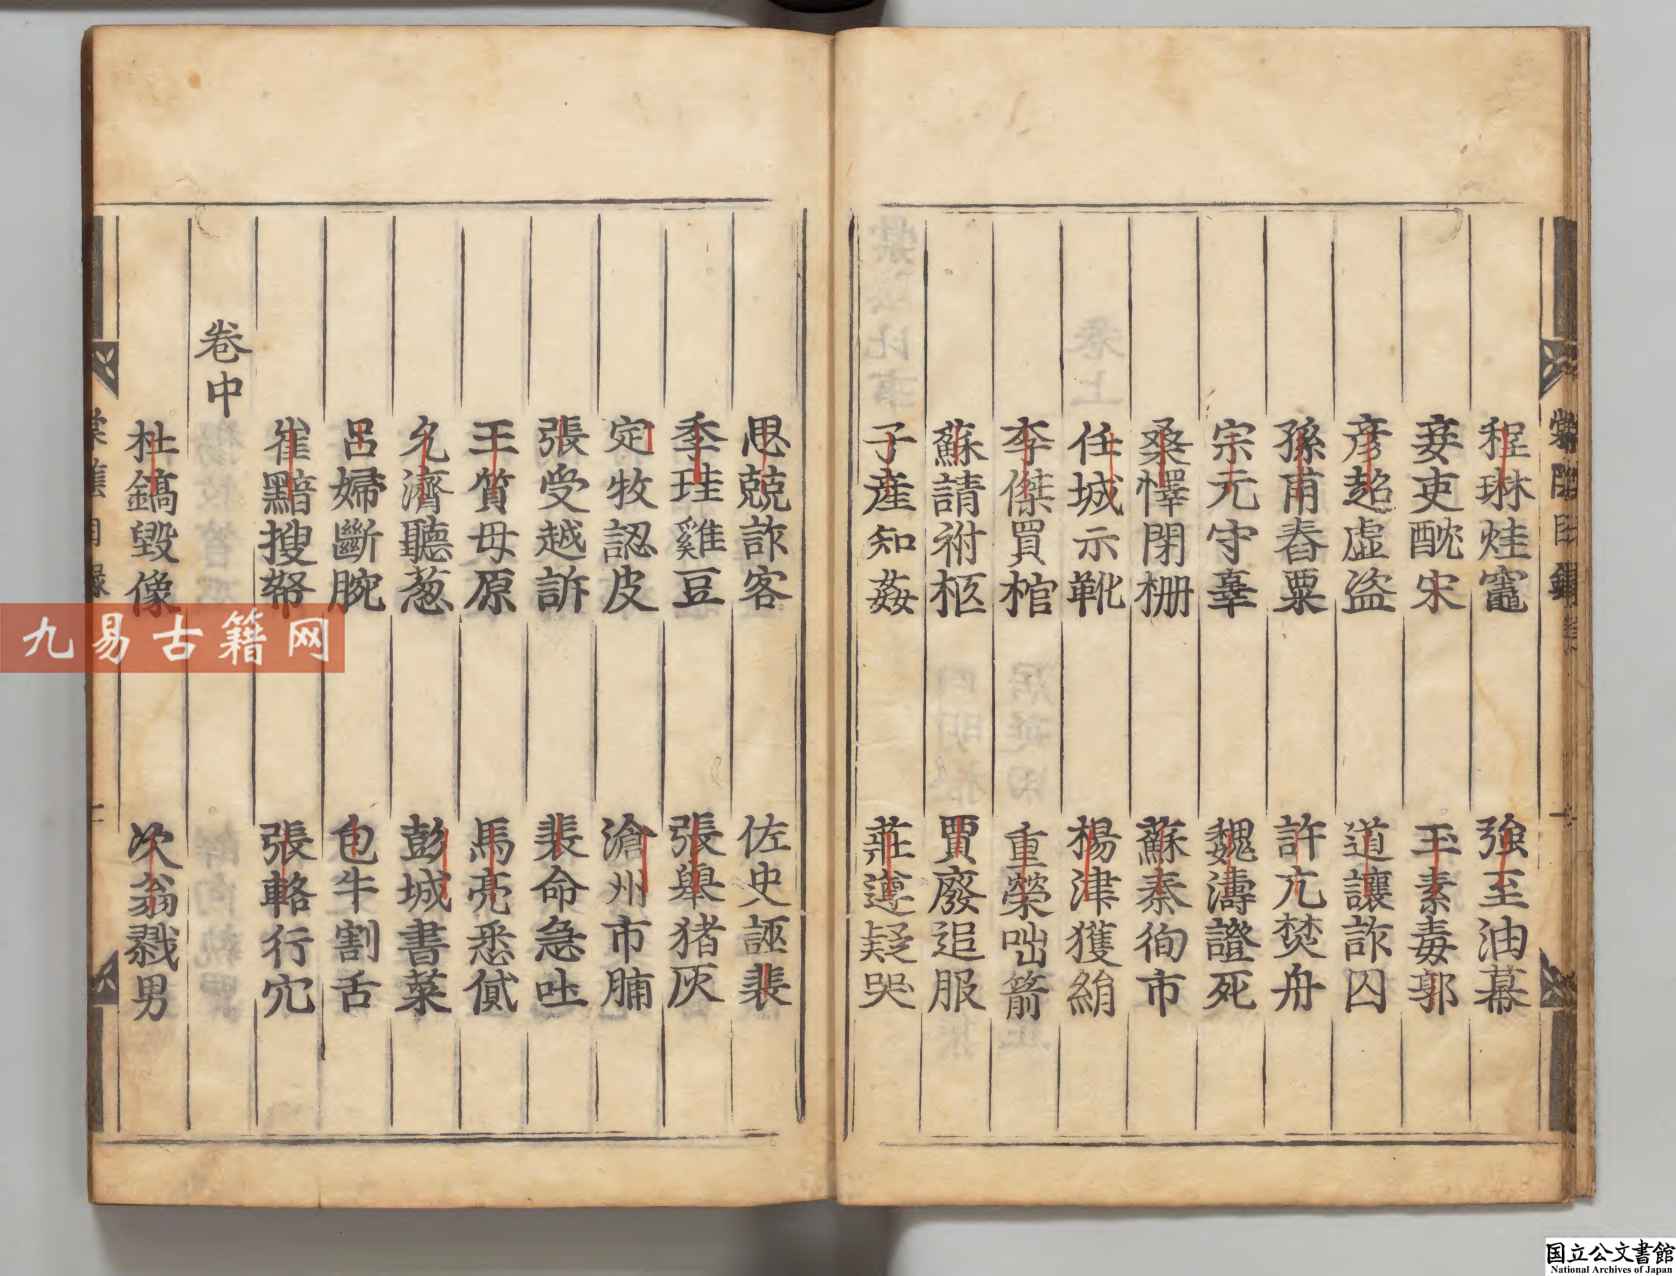 程琳炷竈　強至油幕
妾吏酖宋　玉素毒郭
彥超虛盜　道讓詐囚
孫甫舂粟　許亢焚舟
宗元守辜　魏濤證死
桑懌閉柵　蘇秦徇市
任城示靴　楊津獲絹
李傑買棺　重榮咄箭
蘇請祔柩　賈廢追服
子產知姦　莊遵疑哭
思兢詐客　佐史誣裴
季珪雞豆　張舉猪灰
定牧認皮　滄州市脯
張受越訴　裴命急吐
王質母原　馬亮悉貸
允濟聽葱　彭城書菜
呂婦斷腕　包牛割舌
崔黯搜帑　張輅行穴
卷中
杜鎬毀像　次翁戮男
棠陰目錄
九易古籍网
国立公文書館
National Archives of Japan